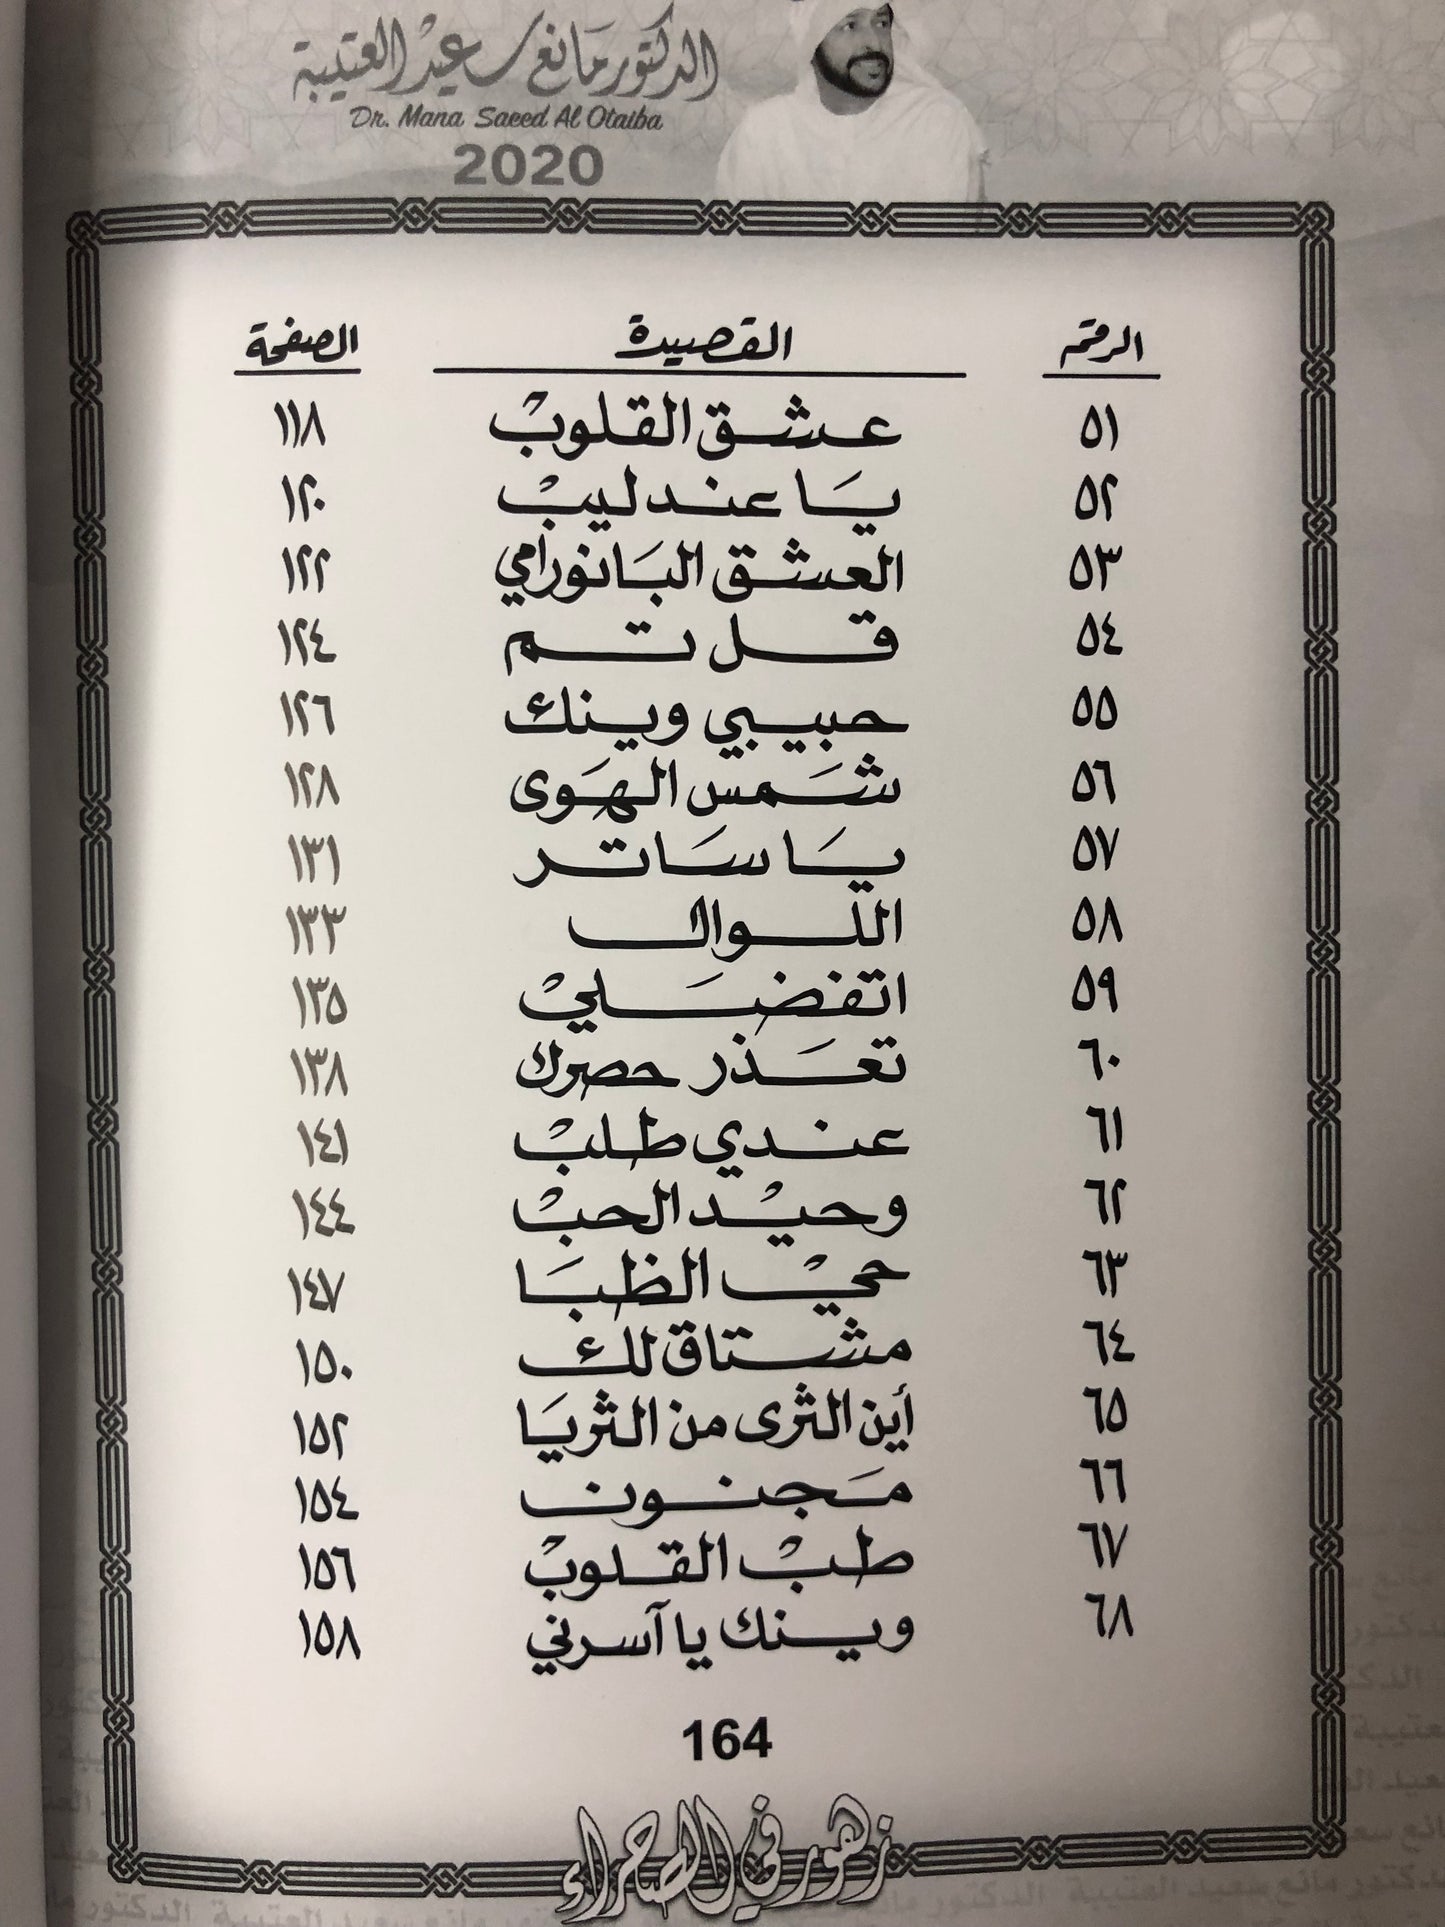 الدكتور مانع سعيد العتيبة
Dr. Mana Saeed Al Otaiba
2020
الرقم القصيدة الصفحة
٥١ عشق القلوب ١١٨
٥٢ يا عندليب ١٢٠
٥٣ العشق البانورامي ١٢٢
٥٤ قل تم ١٢٤
٥٥ حبيبي وينك ١٢٦
٥٦ شمس الهوى ١٢٨
٥٧ يا ساتر ١٣١
٥٨ اللوال ١٣٣
٥٩ اتفضلي ١٣٥
٦٠ تعذر حصرك ١٣٨
٦١ عندي طلب ١٤١
٦٢ وحيد الحب ١٤٤
٦٣ حي الظبا ١٤٧
٦٤ مشتاق لك ١٥٠
٦٥ أين الثرى من الثريا ١٥٢
٦٦ مجنون ١٥٤
٦٧ طب القلوب ١٥٦
٦٨ وينك يا آسرني ١٥٨
164
زهور في الصحراء